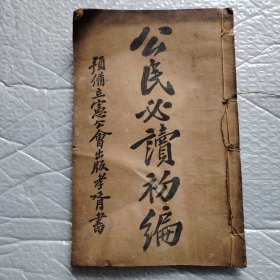 公民必讀初編
預備立憲公會出版孝胥書